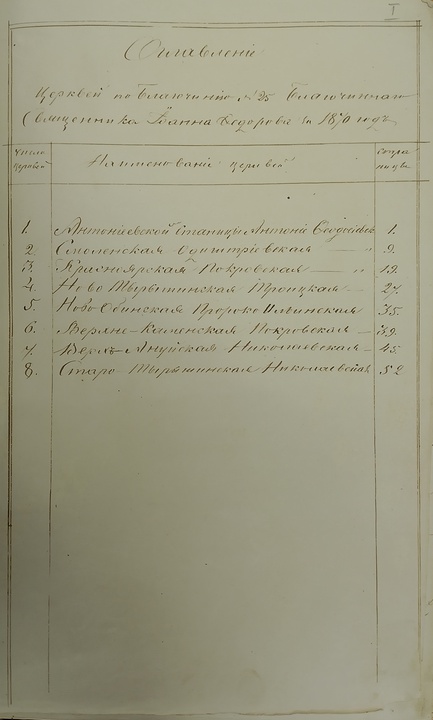 I
Оглавленіе
Церквей по Благочинію № 25 Благочиннаго
Священника Іоанна Ѳедорова за 1870 годъ
Число церквей
Наименованіе церквей
Страницы
1. Антоніевской Станицы Антоніе 1.
2. Смоленская Одигитріевская — " 9.
3. Красноярская Покровская — " 19.
4. Ново Тырышкинская Троицкая — 27.
5. Ново Обинская Пророко Ильинская 35.
6. Верхне-Каменская Покровская — 39.
7. Верхъ-Ануйская Николаевская — 45.
8. Старо-Тырышкинская Николаевская 52